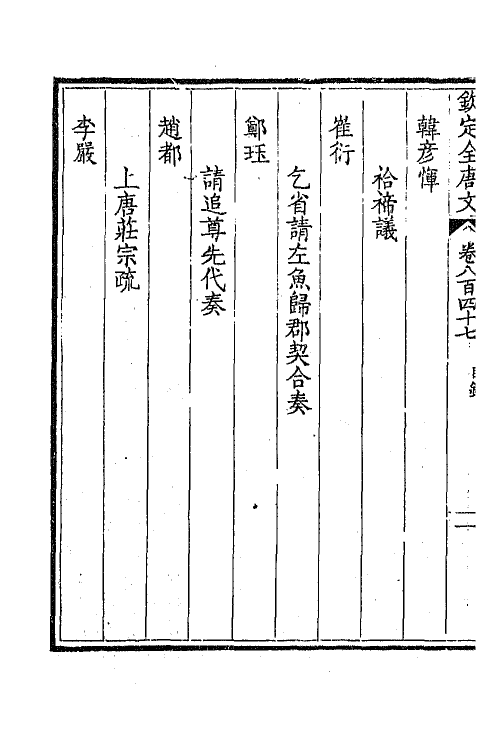 欽定全唐文 卷八百四十七 目錄 二
韓彥惲
祫禘議
崔衍
乞省請左魚歸郡契合奏
鄭珏
請追尊先代奏
趙都
上唐莊宗疏
李嚴